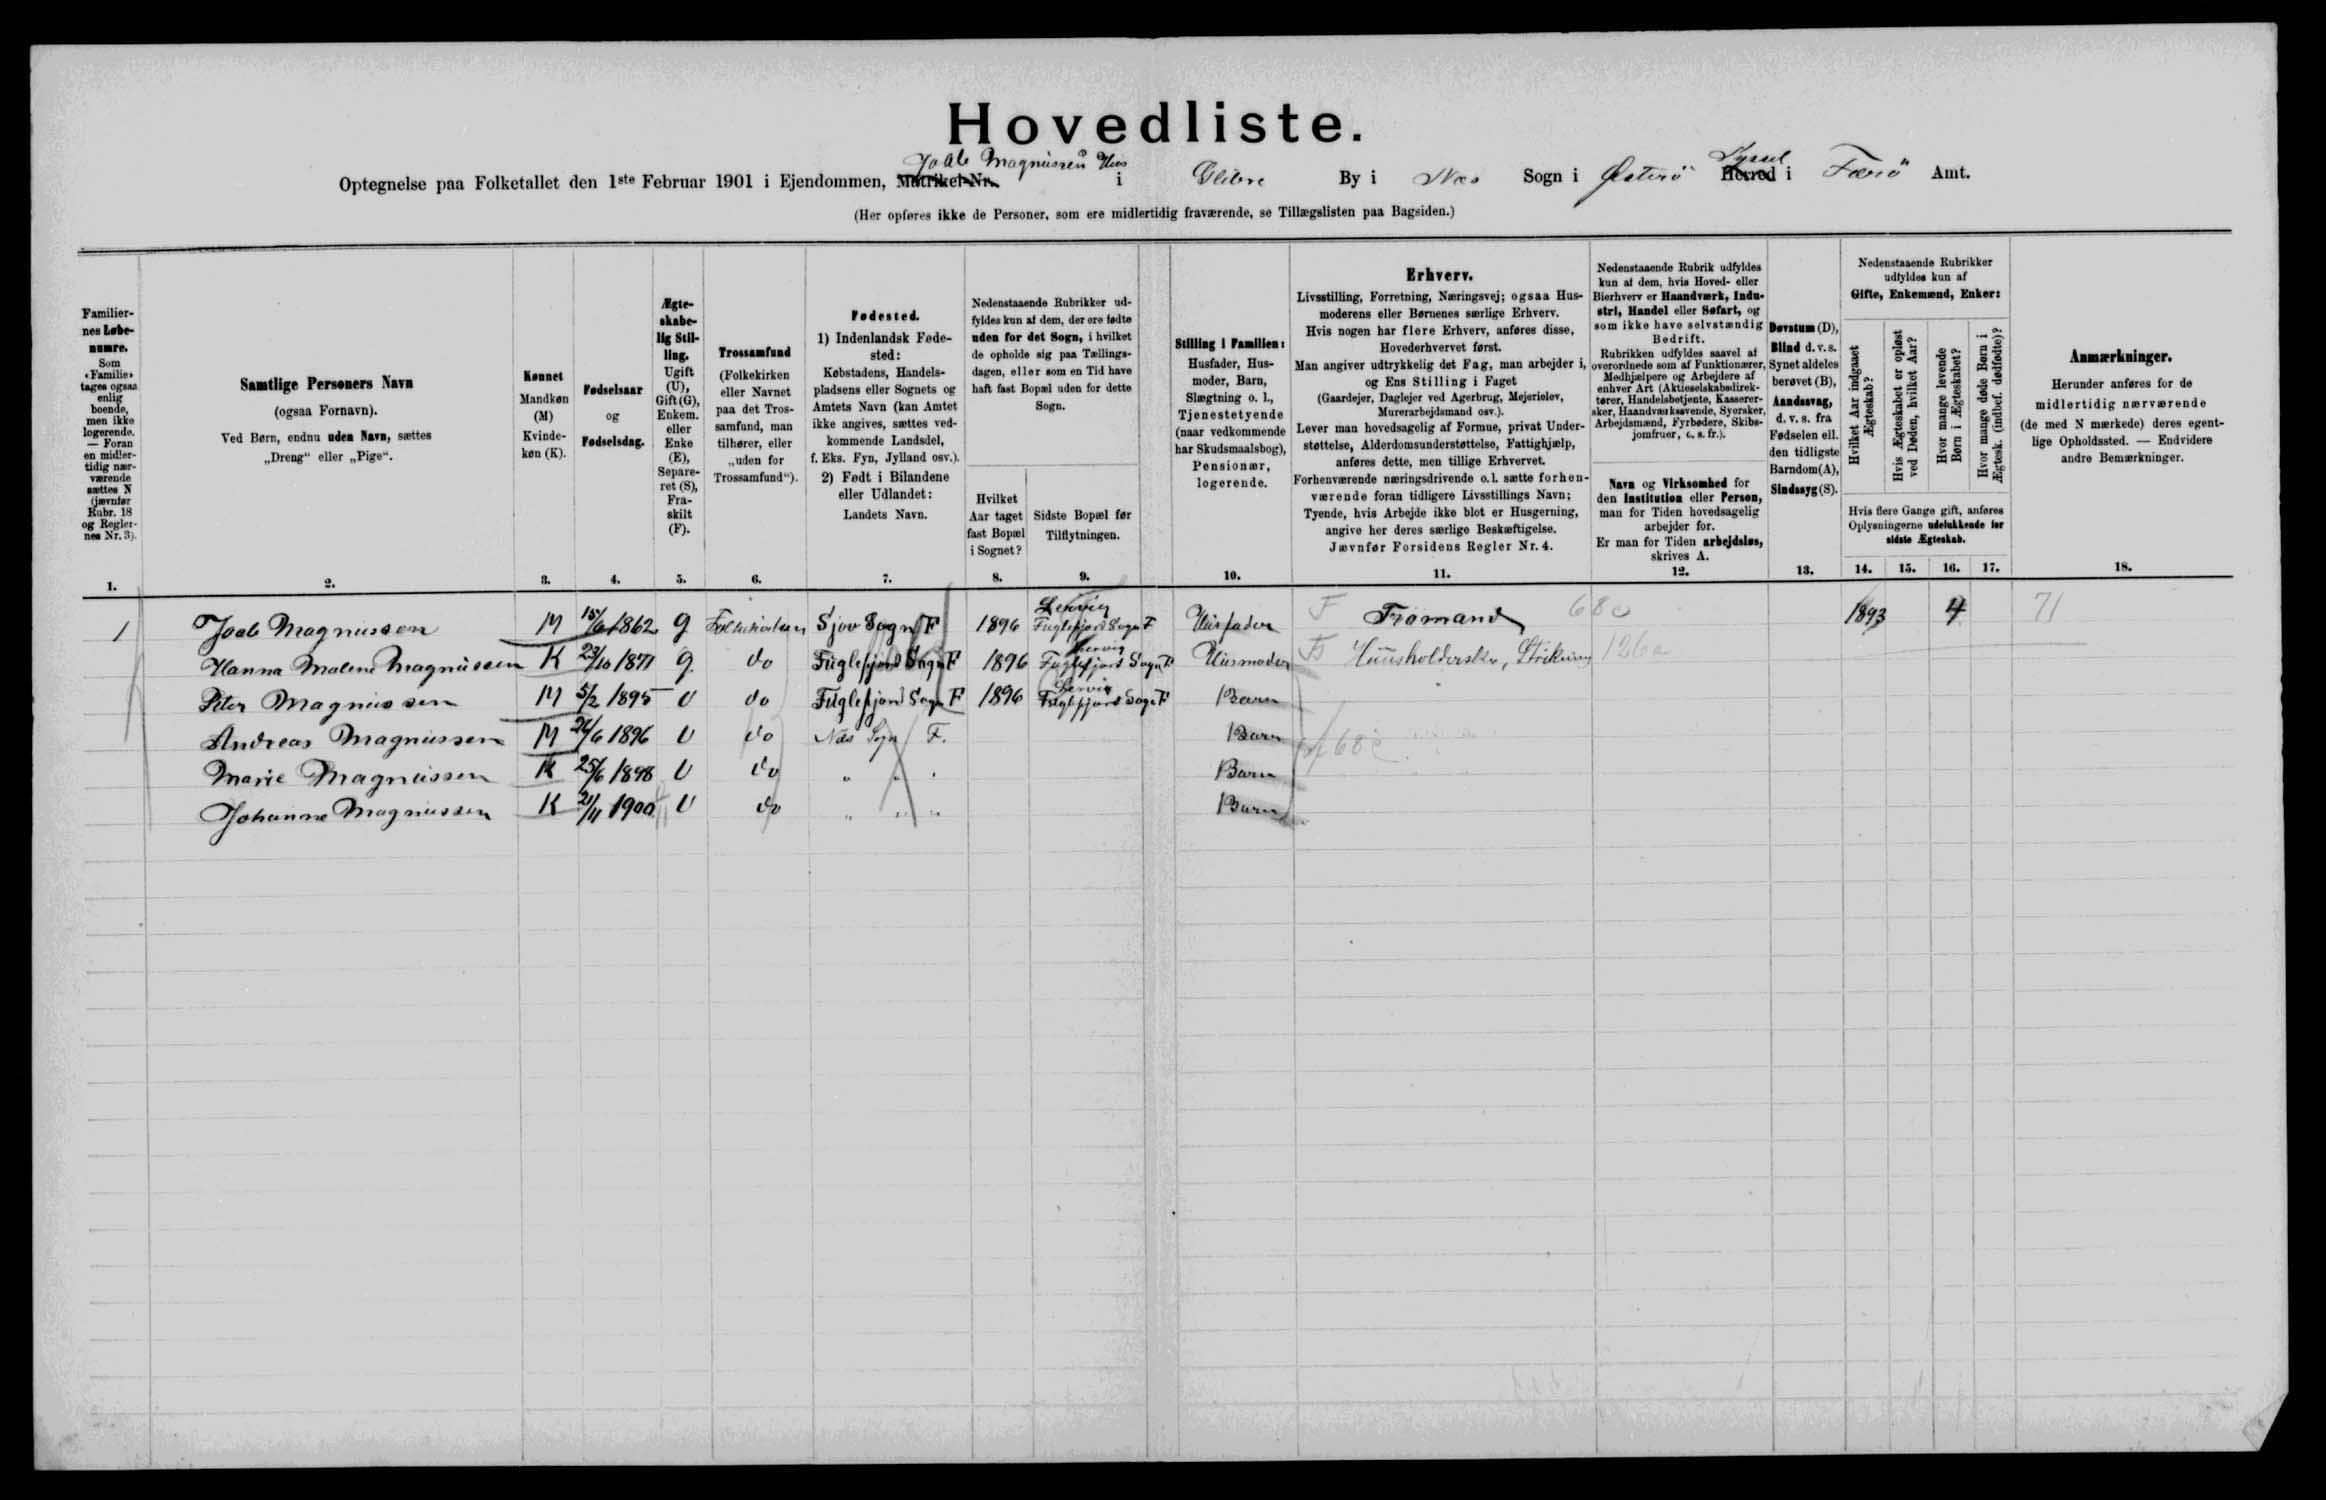 Hovedliste.
Optegnelse paa Folketallet den 1ste Februar 1901 i Ejendommen, Matrikel-Nr. Joab Magnussens Hus i Glibre By i Næs Sogn i Østerö Herred Syssel i Færö Amt.
(Her opføres ikke de Personer, som ere midlertidig fraværende, se Tillægslisten paa Bagsiden.)
Familier-
nes Løbe-
numre.
Som
«Familie»
tages ogsaa
enlig
boende,
men ikke
logerende.
— Foran
en midler-
tidig nær-
værende
sættes N
(jævnfør
Rubr. 18
og Regler-
nes Nr. 3).
1.
Samtlige Personers Navn
(ogsaa Fornavn).
Ved Børn, endnu uden Navn, sættes
„Dreng“ eller „Pige“.
2.
Kønnet
Mandkøn
(M)
Kvinde-
køn (K).
3.
Fødselsaar
og
Fødselsdag.
4.
Ægte-
skabe-
lig Stil-
ling.
Ugift
(U),
Gift (G),
Enkem.
eller
Enke
(E),
Separe-
ret (S),
Fra-
skilt
(F).
5.
Trossamfund
(Folkekirken
eller Navnet
paa det Tros-
samfund, man
tilhører, eller
„uden for
Trossamfund“).
6.
Fødested.
1) Indenlandsk Føde-
sted:
Købstadens, Handels-
pladsens eller Sognets og
Amtets Navn (kan Amtet
ikke angives, sættes ved-
kommende Landsdel,
f. Eks. Fyn, Jylland osv.).
2) Født i Bilandene
eller Udlandet:
Landets Navn.
7.
Nedenstaaende Rubrikker ud-
fyldes kun af dem, der ere fødte
uden for det Sogn, i hvilket
de opholde sig paa Tællings-
dagen, eller som en Tid have
haft fast Bopæl uden for dette
Sogn.
Hvilket
Aar taget
fast Bopæl
i Sognet?
8.
Sidste Bopæl før
Tilflytningen.
9.
Stilling i Familien:
Husfader, Hus-
moder, Barn,
Slægtning o. l.,
Tjenestetyende
(naar vedkommende
har Skudsmaalsbog),
Pensionær,
logerende.
10.
Erhverv.
Livsstilling, Forretning, Næringsvej; ogsaa Hus-
moderens eller Børnenes særlige Erhverv.
Hvis nogen har flere Erhverv, anføres disse,
Hovederhvervet først.
Man angiver udtrykkelig det Fag, man arbejder i,
og Ens Stilling i Faget
(Gaardejer, Daglejer ved Agerbrug, Mejerielev,
Murerarbejdsmand osv.).
Lever man hovedsagelig af Formue, privat Under-
støttelse, Alderdomsunderstøttelse, Fattighjælp,
anføres dette, men tillige Erhvervet.
Forhenværende næringsdrivende o. l. sætte forhen-
værende foran tidligere Livsstillings Navn;
Tyende, hvis Arbejde ikke blot er Husgerning,
angive her deres særlige Beskæftigelse.
Jævnfør Forsidens Regler Nr. 4.
11.
Nedenstaaende Rubrik udfyldes
kun af dem, hvis Hoved- eller
Bierhverv er Haandværk, Indu-
stri, Handel eller Søfart, og
som ikke have selvstændig
Bedrift.
Rubrikken udfyldes saavel af
overordnede som af Funktionærer,
Medhjælpere og Arbejdere af
enhver Art (Aktieselskabsdirek-
tører, Handelsbetjente, Kasserer-
sker, Haandværkssvende, Syersker,
Arbejdsmænd, Fyrbødere, Skibs-
jomfruer, o. s. fr.).
Navn og Virksomhed for
den Institution eller Person,
man for Tiden hovedsagelig
arbejder for.
Er man for Tiden arbejdsløs,
skrives A.
12.
Døvstum (D),
Blind d. v. s.
Synet aldeles
berøvet (B),
Aandssvag,
d. v. s. fra
Fødselen ell.
den tidligste
Barndom (A),
Sindssyg (S).
13.
Nedenstaaende Rubrikker
udfyldes kun af
Gifte, Enkemænd, Enker:
Hvilket Aar indgaaet
Ægteskab?
Hvis Ægteskabet er opløst
ved Døden, hvilket Aar?
Hvor mange levende
Børn i Ægteskabet?
Hvor mange døde Børn i
Ægtesk. (indbef. dødfødte)?
Hvis flere Gange gift, anføres
Oplysningerne udelukkende for
sidste Ægteskab.
14. 15. 16. 17.
Anmærkninger.
Herunder anføres for de
midlertidig nærværende
(de med N mærkede) deres egent-
lige Opholdssted. — Endvidere
andre Bemærkninger.
18.
1 Joab Magnussen M 15/6 1862 g Folkekirken Sjov Sogn F 1896 Lervig Fuglefjord Sogn F Husfader F Tromand 68c 1893 4 71
Hanna Malene Magnussen K 23/10 1871 g do Fuglefjord Sogn F 1896 Lervig Fuglefjord Sogn F Husmoder Huusholderske, Strikning 126a
Peter Magnussen M 5/2 1895 U do Fuglefjord Sogn F 1896 Lervig Fuglefjord Sogn F Barn
Andreas Magnussen M 26/6 1896 U do Næs Sogn F. Barn 68c
Marie Magnussen K 25/6 1898 U do " " " Barn
Johanne Magnussen K 21/11 1900 U do " " " Barn